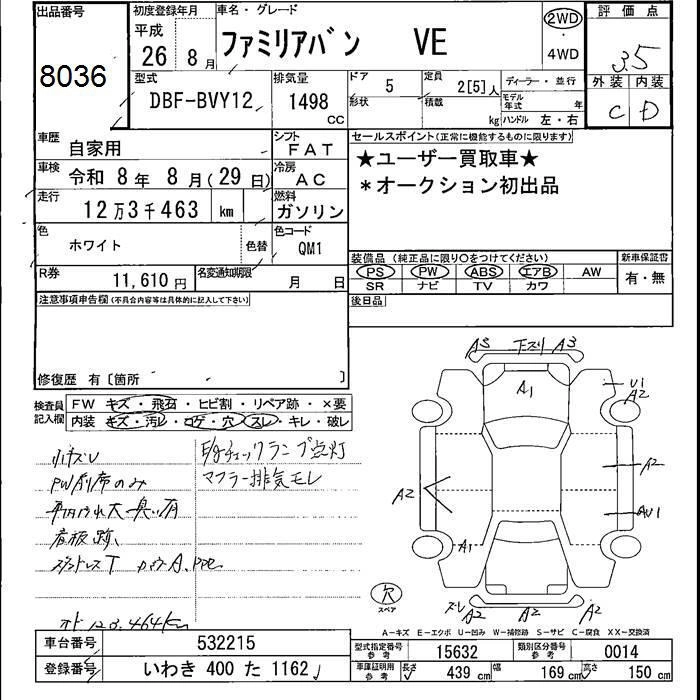 出品番号 初度登録年月 車名・グレード 評価点
8036 平成 26 8月 ファミリアバン VE 2WD ・ 4WD 3.5
型式 排気量 ドア 5 定員 2[5]人 ディーラー・並行 外装 内装
DBF-BVY12 1498 cc 形状 積載 kg モデル年式 年 ハンドル 左・右 C D
車歴 自家用 シフト FAT セールスポイント(正常に機能するものに限ります)
車検 令和 8年 8月(29日) 冷房 AC ★ユーザー買取車★
走行 12万3千463 km 燃料 ガソリン *オークション初出品
色 ホワイト 色替 色コード QM1
装備品(純正品に限り○をつけてください) 新車保証書
R券 11,610円 名変通知期限 月 日 PS PW ABS エアB AW 有・無
SR ナビ TV カワ
注意事項申告欄(不具合内容等は具体的に記入して下さい) 後日品
修復歴 有〔箇所 〕
検査員記入欄 FW キズ・飛石・ヒビ割・リペア跡・×要
内装 キズ・汚レ・コゲ・穴・スレ・キレ・破レ
小キズU
PW前席のみ
チェックランプ点灯
マフラー排気モレ
看板跡、
AS 下スリ A3
A1
U1
A2
A2
A2
AU1
A1
スレ A2 A2 A2
欠
スペア
A-キズ E-エクボ U-凹み W-補修跡 S-サビ C-腐食 XX-交換済
車台番号 532215 型式指定番号 参考 15632 類別区分番号 参考 0014
登録番号 いわき 400 た 1162 車庫証明用 参考 長さ 439 cm 幅 169 cm 高さ 150 cm